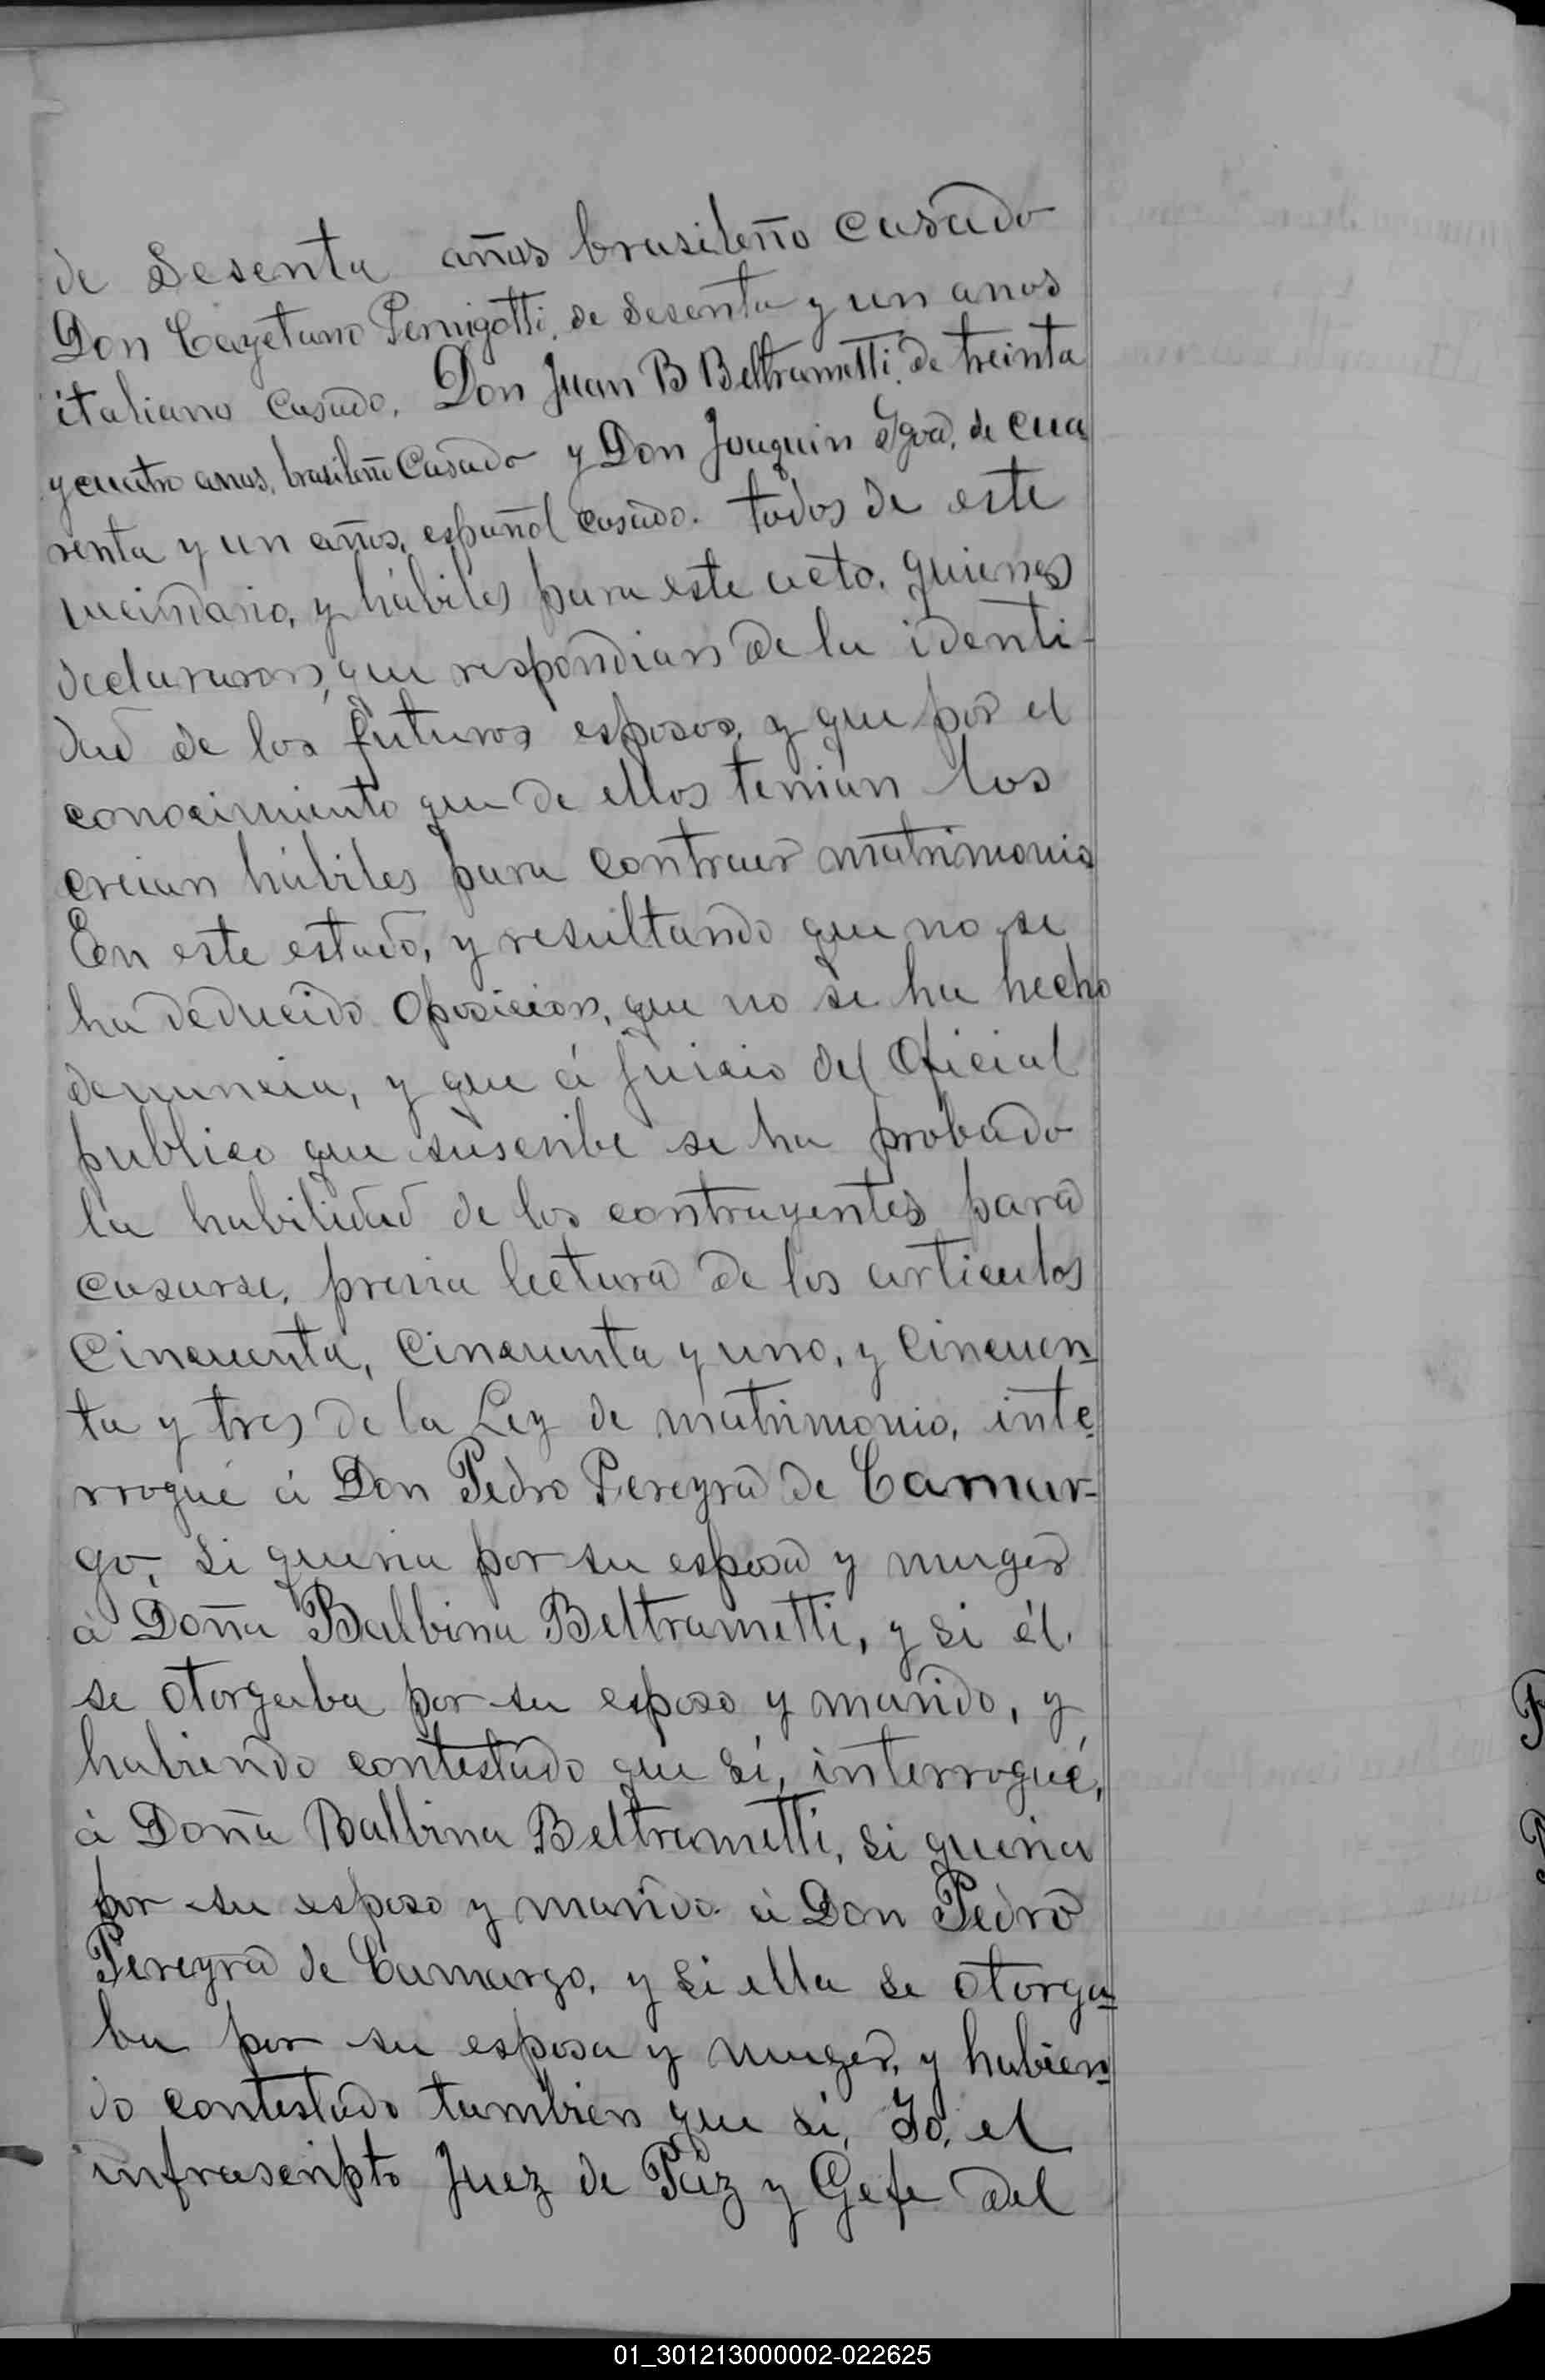 de Sesenta años brasileño casado
Don Cayetano Pernigotti, de sesenta y un anos
italiano casado, Don Juan B Beltrametti, de treinta
y cuatro anos, brasileño Casado y Don Joaquin de cua
renta y un años, español casado. todos de este
vecindario, y hábiles para este acto, quienes
declararon, que respondian de la identi-
dad de los futuros esposos, y que por el
conocimiento que de ellos tenian los
creian hábiles para contraer matrimonio
En este estado, y resultando que no se
ha deducido oposicion, que no se ha hecho
denuncia, y que á juicio del Oficial
publico que suscribe se ha probado
la habilidad de los contrayentes para
casarse, previa lectura de los articulos
Cincuenta, Cincuenta y uno, y Cincuen-
ta y tres de la Ley de matrimonio, inte-
rrogué á Don Pedro Pereyra de Camar-
go, si queria por su esposa y muger
á Doña Balbina Beltrametti, y si él
se otorgaba por su esposo y marido, y
habiendo contestado que sí, interrogué,
á Doña Balbina Beltrametti, si queria
por su esposo y marido á Don Pedro
Pereyra de Camargo, y si ella se otorga-
ba por su esposa y muger, y habien-
do contestado tambien que sí, Yo, el
infrascripto Juez de Paz y Gefe del
01_301213000002-022625